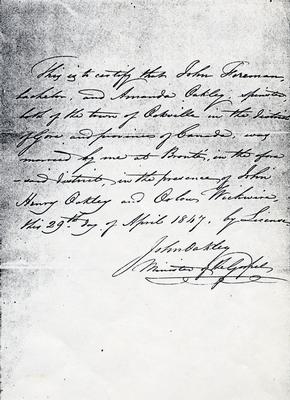 This is to certify that John Foreman,
bachelor, and Amanda Oakley, spinster
both of the town of Oakville in the district
of Gore and province of Canada, was
married by me at Bronte, in the
and district, in the presence of John
Henry Oakley and Wickwire,
this 29th day of April 1847. by License
John Oakley
Minister of the Gospel